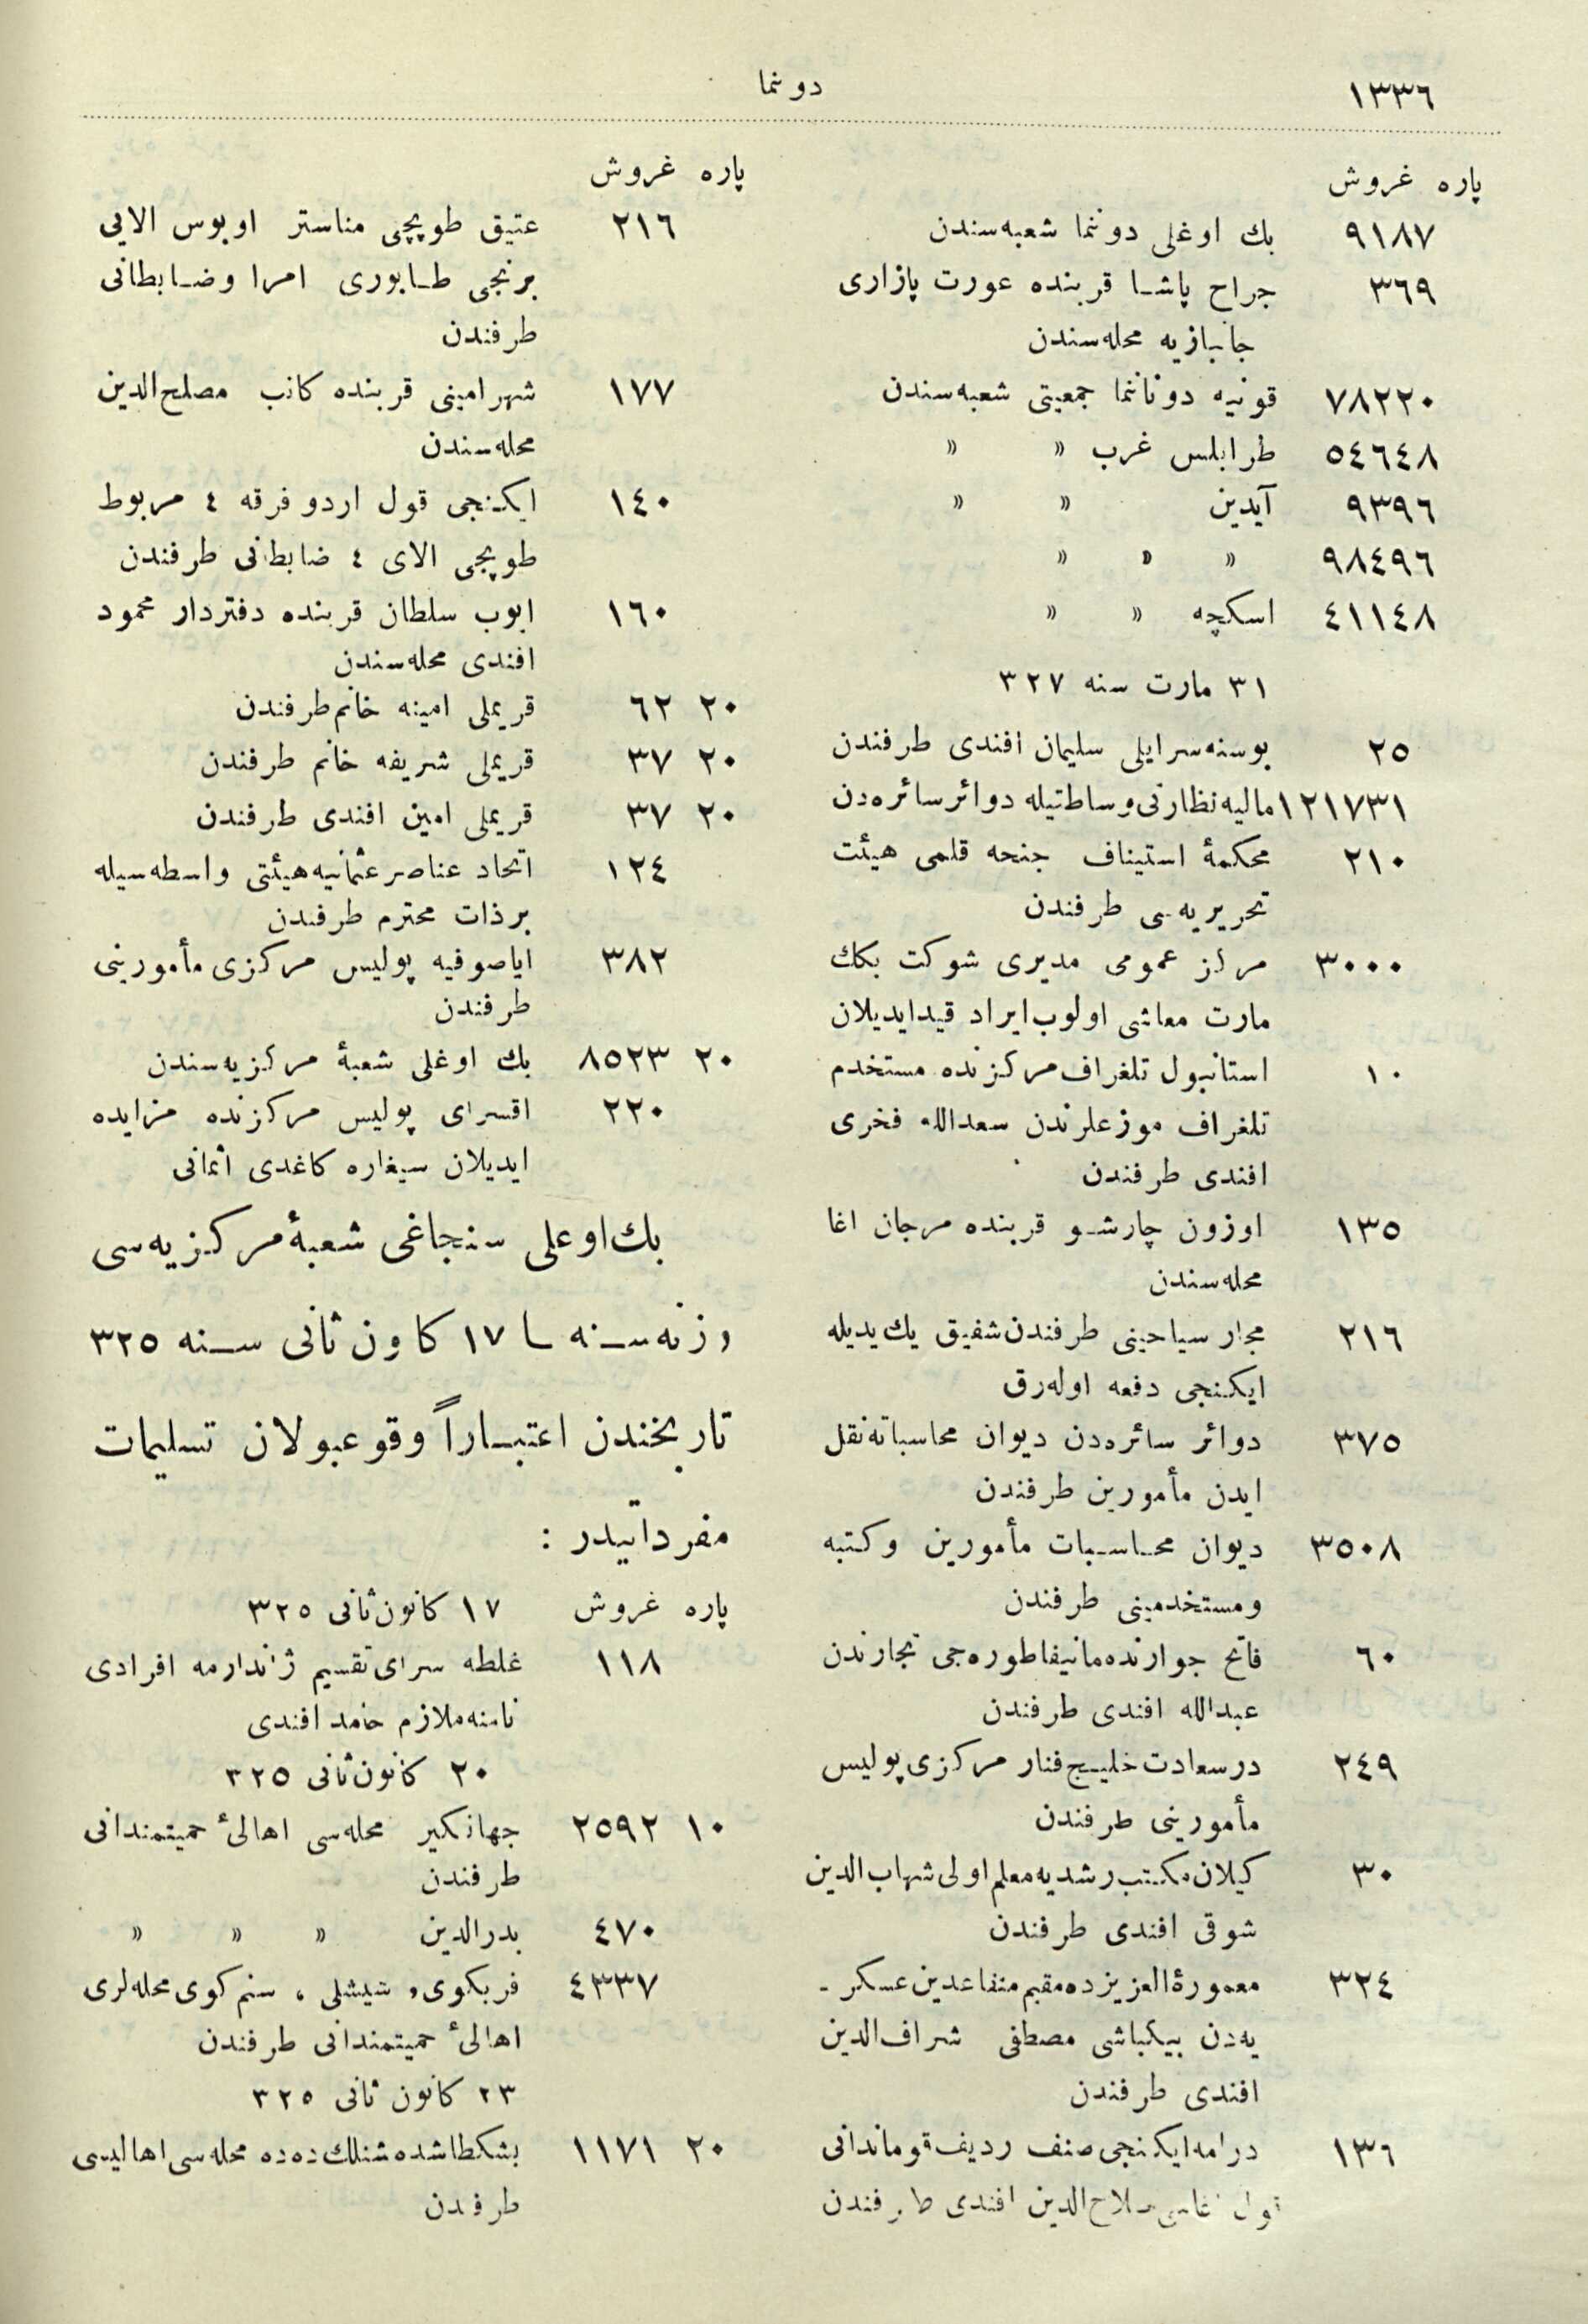 ١٣٣٦
دونما
پاره غروش
٩١٨٧ بك اوغلی دوننما شعبه‌سندن
٣٦٩ جراح پاشا قربنده عورت پازاری
جانبازیه محله‌سندن
٧٨٢٢٠ قونیه دوناننما جمعیتی شعبه‌سندن
٥٤٦٤٨ طرابلس غرب » »
٩٣٩٦ آیدین » »
٩٨٤٩٦ » » »
٤١١٤٨ اسکچه » »
٣١ مارت سنه ٣٢٧
٢٥ بوسنه‌سرایلی سلیمان افندی طرفندن
١٢١٧٣١ مالیه نظارتی وساطتیله دوائر سائره‌دن
٢١٠ محکمهٔ استیناف جنحه قلمی هیئت
تحریریه‌سی طرفندن
٣٠٠٠ مرکز عمومی مدیری شوکت بکك
مارت معاشی اولوب ایراد قید ایدیلان
١٠ استانبول تلغراف مرکزنده مستخدم
تلغراف موزعلرندن سعدالله فخری
افندی طرفندن
١٣٥ اوزون چارشو قربنده مرجان اغا
محله‌سندن
٢١٦ مجار سیاحینی طرفندن شفیق بك یدیله
ایکنجی دفعه اوله‌رق
٣٧٥ دوائر سائره‌دن دیوان محاسباته نقل
ایدن مأمورین طرفندن
٣٥٠٨ دیوان محاسبات مأمورین وکتبه
ومستخدمینی طرفندن
٦٠ فاتح جوارنده مانیفاطوره‌جی تجارندن
عبدالله افندی طرفندن
٢٤٩ درسعادت خلیج فنار مرکزی پولیس
مأمورینی طرفندن
٣٠ کیلان مکتب رشدیه معلم اولی شهاب الدین
شوقی افندی طرفندن
٣٢٤ معمورة العزیزده مقیم متقاعدین عسکر -
یه‌دن بیکباشی مصطفی شراف الدین
افندی طرفندن
١٣٦ درامه ایکنجی صنف ردیف قوماندانی
قول اغاسی صلاح الدین افندی طرفندن
پاره غروش
٢١٦ عتیق طوپچی مناستر اوبوس الایی
برنجی طابوری امرا وضابطانی
طرفندن
١٧٧ شهرامینی قربنده کاتب مصلح الدین
محله‌سندن
١٤٠ ایکنجی قول اردو فرقه ٤ مربوط
طوپجی الای ٤ ضابطانی طرفندن
١٦٠ ایوب سلطان قربنده دفتردار محمود
افندی محله‌سندن
٢٠ ٦٢ قریملی امینه خانم طرفندن
٢٠ ٣٧ قریملی شریفه خانم طرفندن
٢٠ ٣٧ قریملی امین افندی طرفندن
١٢٤ اتحاد عناصر عثمانیه هیئتی واسطه‌سیله
بر ذات محترم طرفندن
٣٨٢ ایاصوفیه پولیس مرکزی مأمورینی
طرفندن
٢٠ ٨٥٢٣ بك اوغلی شعبهٔ مرکزیه‌سندن
٢٢٠ اقسرای پولیس مرکزنده مزایده
ایدیلان سیغاره کاغدی اثمانی
بك اوغلی سنجاغی شعبهٔ مرکزیه‌سی
وزنه‌سنه ١٧ کانون ثانی سنه ٣٢٥
تاریخندن اعتباراً وقوعبولان تسلیمات
مفرداتیدر :
پاره غروش ١٧ کانون ثانی ٣٢٥
١١٨ غلطه سرای تقسیم ژاندارمه افرادی
نامنه ملازم حامد افندی
٢٠ کانون ثانی ٣٢٥
١٠ ٢٥٩٢ جهانکیر محله‌سی اهالیٔ حمیتمندانی
طرفندن
٤٧٠ بدرالدین » » »
٤٣٣٧ فریکوی، شیشلی ، سنم کوی محله‌لری
اهالیٔ حمیتمندانی طرفندن
٢٣ کانون ثانی ٣٢٥
٢٠ ١١٧١ بشکطاشده شنلك‌دده محله‌سی اهالیسی
طرفندن